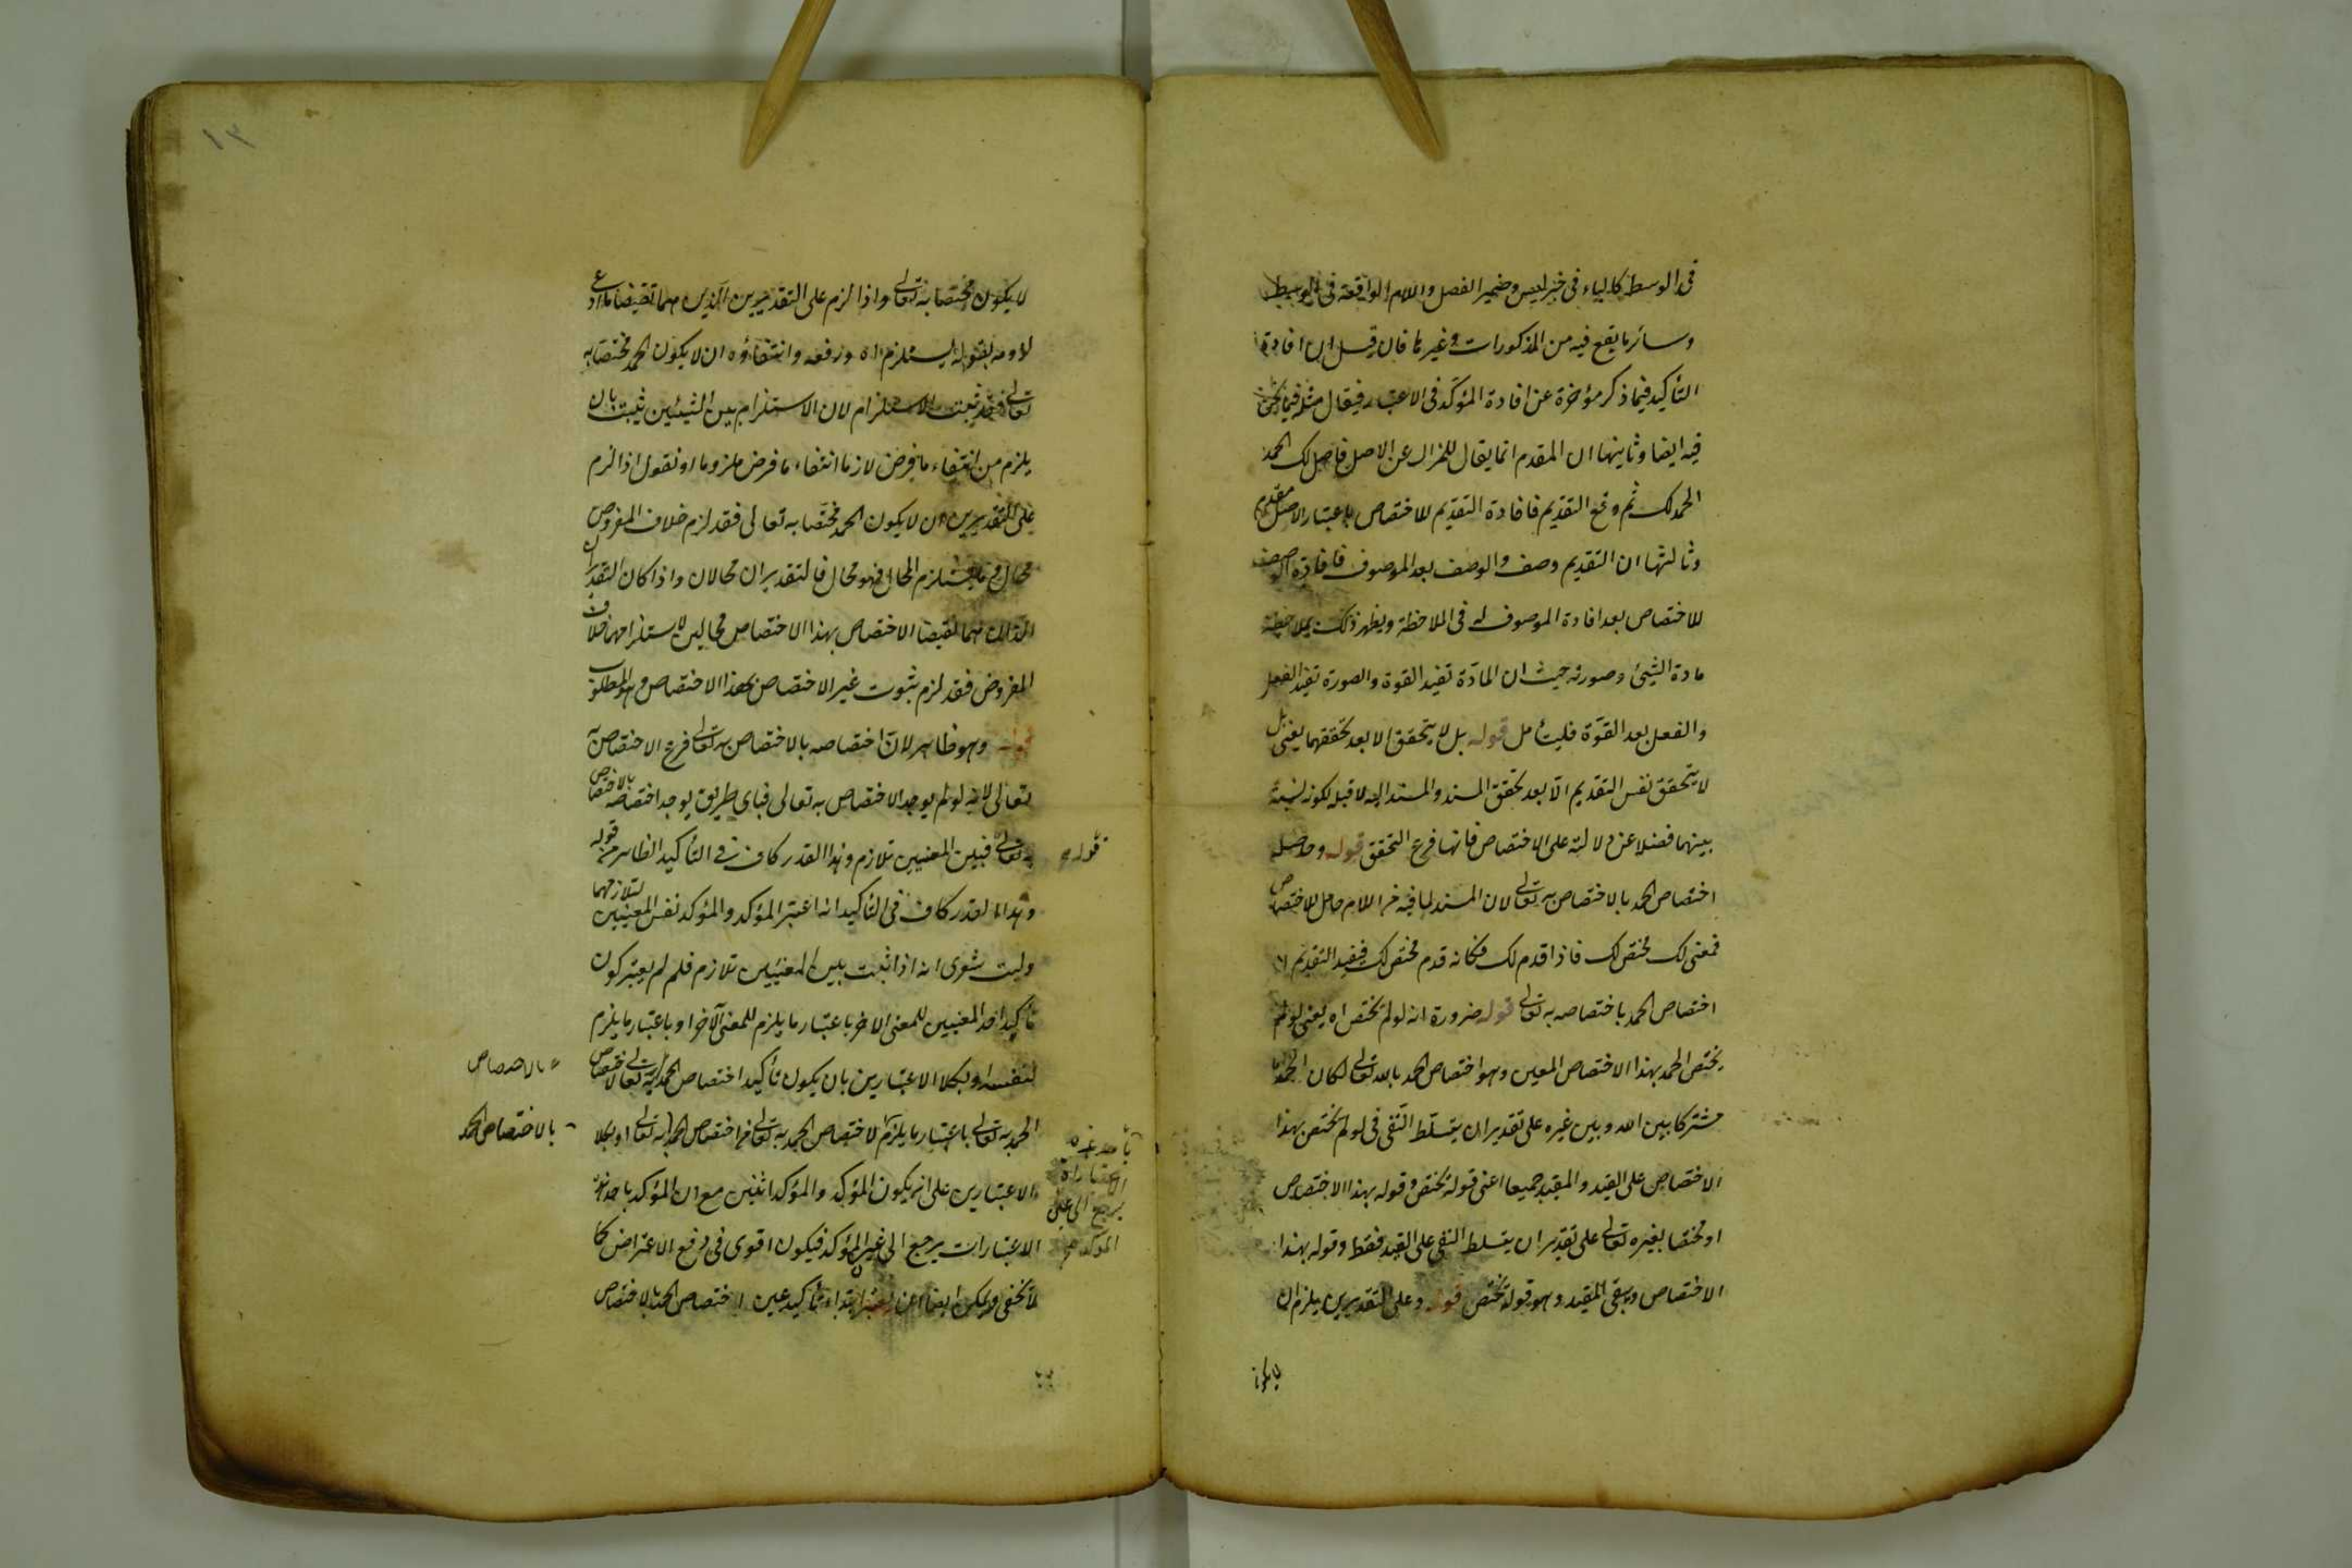 فى الوسط كالباء فى خبر ليس وضمير الفصل واللام الواقعة فى الوسط
وسائر ما يقع فيه من المذكورات وغيرها فان قيل ان افادة
التأكيد فيما ذكر مؤخرة عن افادة المؤكد فى الاعتبار فيقال مثله فيما نحن
فيه ايضا وثانيها ان المقدم انما يقال للمزال عن الاصل فاصل لك الحمد
الحمد لك ثم وقع التقديم فافادة التقديم للاختصاص باعتبار الاصل مقدم
وثالثها ان التقديم وصف والوصف بعد الموصوف فافادة الوصف
للاختصاص بعد افادة الموصوف له فى الملاحظة ويظهر ذلك بملاحظة
مادة الشيئ وصورته حيث ان المادّة تفيد القوة والصورة تفيد الفعل
والفعل بعد القوّة فليتأمل قوله بل لا يتحقق الا بعد تحققهما يعنى بل
لا يتحقق نفس التقديم الا بعد تحقق المسند والمسند اليه لا قبله لكونه نسبة
بينهما فضلا عن دلالته على الاختصاص فانها فرع التحقق قوله وحاصله
اختصاص الحمد بالاختصاص به تعالى لان المسند لما فيه من اللام حامل للاختصاص
فمعنى لك مختص لك فاذا قدم لك فكانه قدم مختص لك فيفيد التقديم
اختصاص الحمد باختصاصه به تعالى قوله ضرورة انه لو لم يختص اه يعنى لو لم
يختص الحمد بهذا الاختصاص المعين وهو اختصاص الحمد بالله تعالى لكان الحمد
مشتركا بين الله وبين غيره على تقدير ان يتسلّط النّفى فى لو لم يختص بهذا
الاختصاص على القيد والمقيد جميعا اعنى قوله يختص وقوله بهذا الاختصاص
او مختصا بغيره تعالى على تقدير ان يتسلط النفى على القيد فقط وقوله بهذا
الاختصاص ويبقى المقيد وهو قوله يختص قوله وعلى التقديرين يلزم ان
لا يكون
١٣
لا يكون مختصا به تعالى واذا لزم على التقديرين الذين هما نقيضا ما ادعى
لزومه بقوله يستلزم اه ورفعه وانتفاؤه ان لا يكون الحمد مختصا به
تعالى فقد ثبت الاستلزام لان الاستلزام بين الشيئين يثبت بان
يلزم من انتفاء ما فرض لازما انتفاء ما فرض ملزوما او نقول اذا لزم
على التقديرين ان لا يكون الحمد مختصا به تعالى فقد لزم خلاف المفروض
محال وما يستلزم المحال فهو محال فالتقديران محالان واذا كان التقديران
اللذان هما نقيضا الاختصاص بهذا الاختصاص محالين لاستلزامهما خلاف
المفروض فقد لزم ثبوت غير الاختصاص بهذا الاختصاص وهو المطلوب
قوله وهو ظاهر لان اختصاصه بالاختصاص به تعالى فرع الاختصاص به
تعالى لانه لو لم يوجد الاختصاص به تعالى فباى طريق يوجد اختصاصه بالاختصاص
به تعالى فبين المعنيين تلازم وهذا القدر كاف فى التأكيد الظاهر من قوله
قوله
وهذا القدر كاف فى التأكيد انه اعتبر المؤكد والمؤكد نفس المعنيين لتلازمهما
وليت شعرى انه اذا ثبت بين المعنيين تلازم فلم لم يعتبر كون
تأكيد احد المعنيين للمعنى الاخر باعتبار ما يلزم للمعنى الآخر او باعتبار ما يلزم
لنفسه او بكلا الاعتبارين بان يكون تأكيد اختصاص الحمد به تعالى لاختصاص
بالاختصاص
الحمد به تعالى باعتبار ما يلزم لاختصاص الحمد به تعالى من اختصاص الحمد به تعالى او بكلا
بالاختصاص الحمد
الاعتبارين على انه يكون المؤكد والمؤكد اثنين مع ان المؤكد باحد هذه
الاعتبارات يرجع الى غير المؤكد فيكون اقوى فى دفع الاعتراض كما
باحد هذه
الاعتبارات
يرجع الى غير
المؤكد
لا يخفى ويمكن ايضا ان يعتبر ابتداء تأكيد عين اختصاص الحمد بالاختصاص